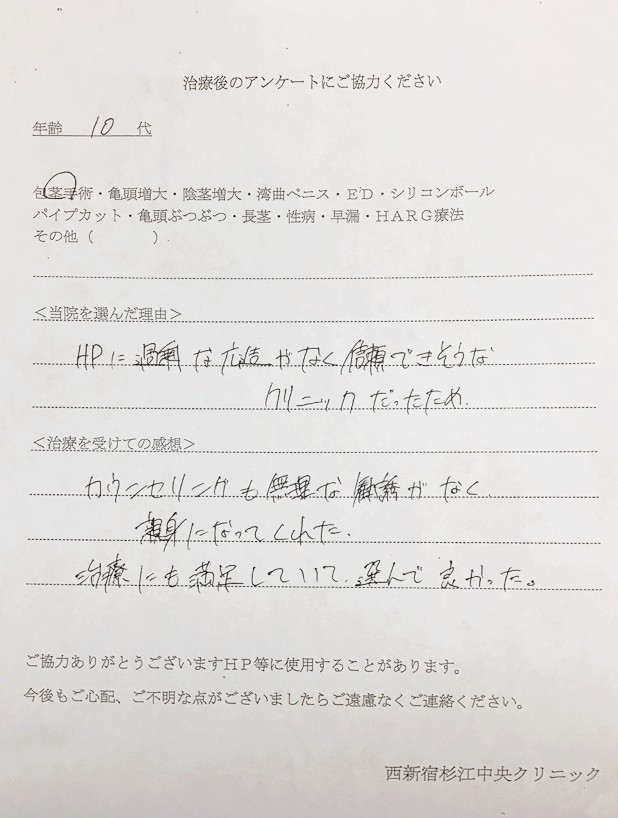 治療後のアンケートにご協力ください
年齢 10 代
包茎手術・亀頭増大・陰茎増大・湾曲ペニス・E'D・シリコンボール
パイプカット・亀頭ぶつぶつ・長茎・性病・早漏・HARG療法
その他（　　　）
<当院を選んだ理由>
HPに過剰な広告がなく信頼できそうな
クリニックだったため.
<治療を受けての感想>
カウンセリングも無理な勧誘がなく.
親身になってくれた.
治療にも満足していて.選んで良かった。
ご協力ありがとうございますHP等に使用することがあります。
今後もご心配、ご不明な点がございましたらご遠慮なくご連絡ください。
西新宿杉江中央クリニック